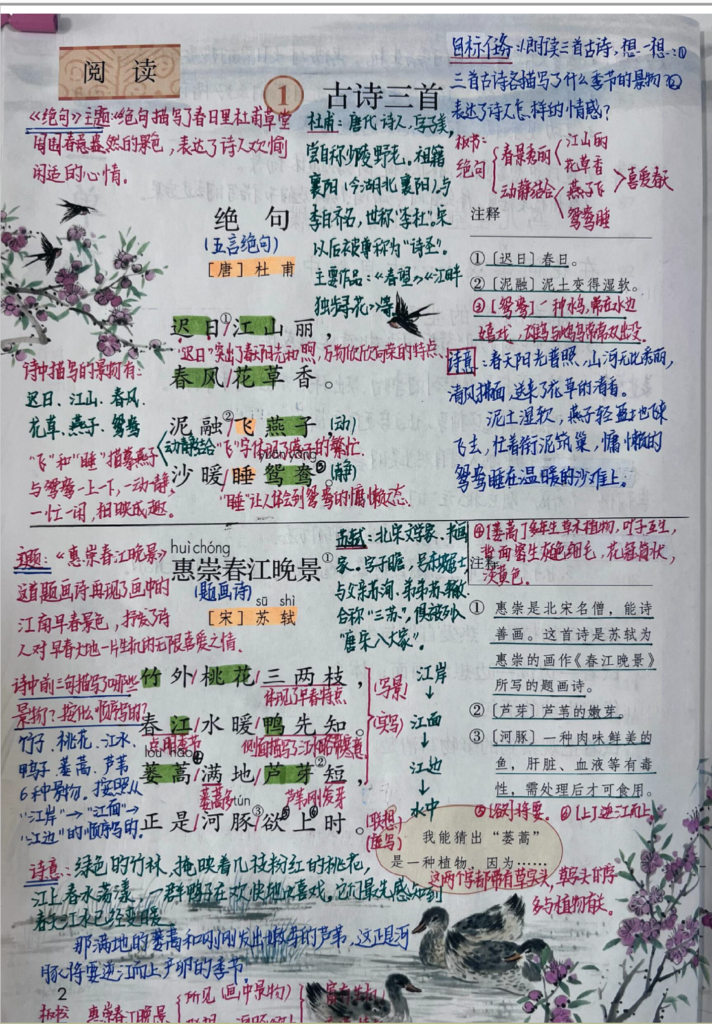 阅 读
① 古诗三首
目标任务:1朗读三首古诗,想一想:①
三首古诗各描写了什么季节的景物?②
表达了诗人怎样的情感?
《绝句》主题:绝句描写了春日里杜甫草堂
周围春意盎然的景色,表达了诗人欢愉
闲适的心情。
杜甫:唐代诗人,字子美,
尝自称少陵野老。祖籍
襄阳(今湖北襄阳),与
李白齐名,世称"李杜"。宋
以后被尊称为"诗圣"。
主要作品:《春望》《江畔
独步寻花》等
板书:
绝句
春景秀丽
江山丽
花草香
动静结合
燕子飞
鸳鸯睡
喜爱春天
注释
绝 句
(五言绝句)
[唐]杜 甫
①[迟日]春日。
②[泥融]泥土变得湿软。
③[鸳鸯]一种水鸟,常在水边
嬉戏,雄鸟与雌鸟常常双出没
迟日①/江山丽,
"迟日"突出了春天阳光和照,万物欣欣向荣的特点
春风/花草香。
泥融②/飞燕子(动)
动静结合 "飞"字体现了燕子的繁忙
yuān yāng
沙暖/睡鸳鸯③。(静)
"睡"让人体会到鸳鸯的慵懒之态
诗中描写的景物有:
迟日、江山、春风、
花草、燕子、鸳鸯
"飞"和"睡"描摹燕子
与鸳鸯一上一下,一动一静,
一忙一闲,相映成趣。
诗意:春天阳光普照,山河无比秀丽,
清风拂面,送来了花草的清香。
泥土湿软,燕子轻盈地快
飞去,忙着衔泥筑巢,慵懒的
鸳鸯睡在温暖的沙滩上。
huì chóng
惠崇春江晚景①
(题画诗)
sū shì
[宋]苏 轼
主题:《惠崇春江晚景》
这首题画诗再现了画中的
江南早春景色,抒发了诗
人对早春大地一片生机的无限喜爱之情。
苏轼:北宋文学家、书画
家。字子瞻,号东坡居士
与父苏洵、弟苏辙
合称"三苏",俱被列入
"唐宋八大家"。
④[蒌蒿]多年生草本植物,叶子互生,
背面密生灰色细毛,花冠筒状,
淡黄色。
注释
① 惠崇是北宋名僧,能诗
善画。这首诗是苏轼为
惠崇的画作《春江晚景》
所写的题画诗。
②[芦芽]芦苇的嫩芽。
③[河豚]一种肉味鲜美的
鱼,肝脏、血液等有毒
性,需处理后才可食用。
⑤[欲]将要。 ⑥[上]逆江而上
诗中前三句描写了哪些
景物?按什么顺序写的?
竹子、桃花、江水、
鸭子、蒌蒿、芦苇
6种景物,按照从
"江岸"→"江面"→
"江边"的顺序写的
竹外/桃花/三两枝,
体现了早春特点
春江水暖/鸭先知。
点明季节 侧面描写
lóu hāo
蒌蒿④/满地/芦芽②短,
蒌蒿多 tún 芦苇刚发芽
正是/河豚③/欲⑤上⑥时。
(写景)
(实写)
(联想)
(虚写)
江岸
↓
江面
↓
江边
↓
水中
我能猜出"蒌蒿"
是一种植物,因为……
这两个字都带有草字头,草字头的字
多与植物有关。
诗意:绿色的竹林,掩映着几枝粉红的桃花,
江上春水荡漾,一群鸭子在欢快地嬉戏。它们最先感知到
春天江水已经变暖。
那满地的蒌蒿和刚刚发出嫩芽的芦苇,这正是河
豚将要逆江而上产卵的季节
2
板书 惠崇春江晚景
所见(画中景物)